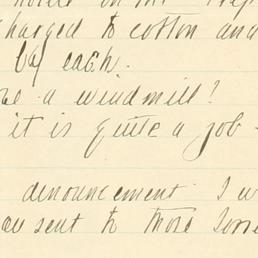 charged to cotton and
by each.
a windmill?
it is quite a job -
announcement I w
sent to those